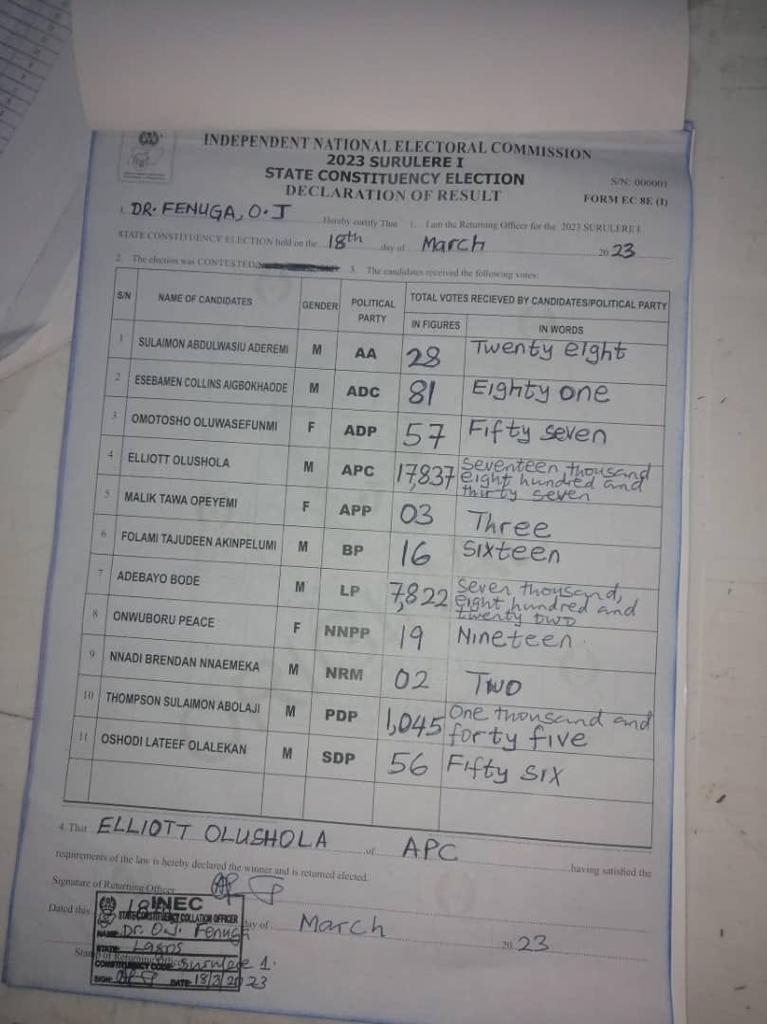 INDEPENDENT NATIONAL ELECTORAL COMMISSION
2023 SURULERE I
STATE CONSTITUENCY ELECTION
DECLARATION OF RESULT
S/N: 000001
FORM EC 8E (I)
1. DR. FENUGA, O.J Hereby certify That 1. I am the Returning Officer for the 2023 SURULERE I
STATE CONSTITUENCY ELECTION held on the 18th day of March 2023
2. The election was CONTESTED 3. The candidates received the following votes:
S/N NAME OF CANDIDATES GENDER POLITICAL PARTY TOTAL VOTES RECIEVED BY CANDIDATES/POLITICAL PARTY
IN FIGURES IN WORDS
1 SULAIMON ABDULWASIU ADEREMI M AA 28 Twenty eight
2 ESEBAMEN COLLINS AIGBOKHAODE M ADC 81 Eighty one
3 OMOTOSHO OLUWASEFUNMI F ADP 57 Fifty seven
4 ELLIOTT OLUSHOLA M APC 17,837 Seventeen thousand eight hundred and thirty seven
5 MALIK TAWA OPEYEMI F APP 03 Three
6 FOLAMI TAJUDEEN AKINPELUMI M BP 16 Sixteen
7 ADEBAYO BODE M LP 7,822 Seven thousand, eight hundred and twenty two
8 ONWUBORU PEACE F NNPP 19 Nineteen
9 NNADI BRENDAN NNAEMEKA M NRM 02 Two
10 THOMPSON SULAIMON ABOLAJI M PDP 1,045 One thousand and forty five
11 OSHODI LATEEF OLALEKAN M SDP 56 Fifty six
4. That ELLIOTT OLUSHOLA of APC having satisfied the
requirements of the law is hereby declared the winner and is returned elected.
Signature of Returning Officer
Dated this 18th day of March 2023
Stamp of Returning Officer
INEC
STATE CONSTITUENCY COLLATION OFFICER
NAME: Dr. O.J. Fenuga
STATE: Lagos
CONSTITUENCY CODE: Surulere 1.
SIGN: DATE: 18/3/2023